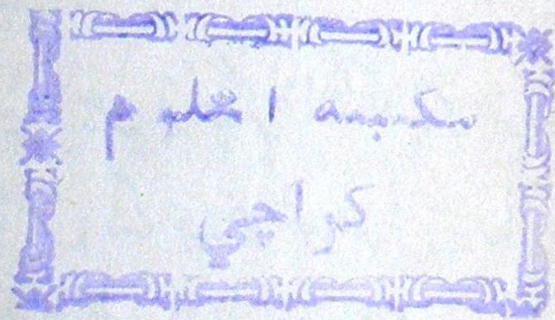 مکتبه العلوم
کراچي